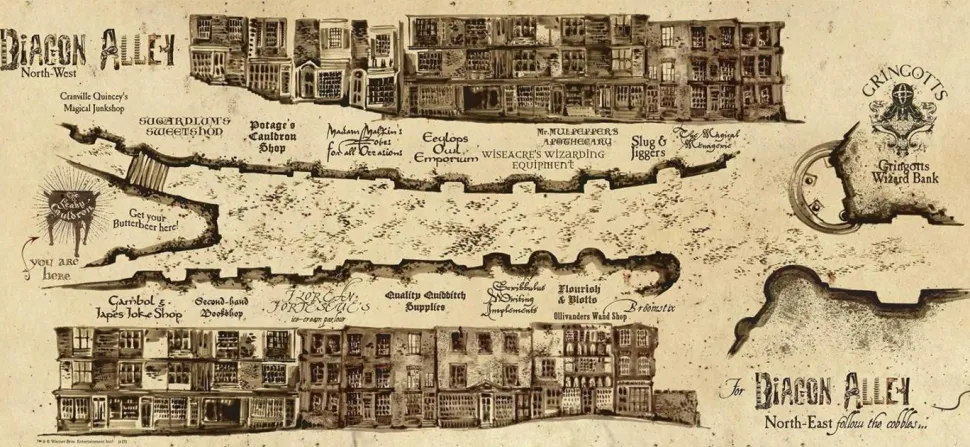 DIAGON ALLEY
North-West
Cranville Quincey's
Magical Junkshop
SUGARPLUM'S
SWEETSHOP
Potage's
Cauldron
Shop
Madam Malkin's
Robes
for all Occasions
Eeylops
Owl
Emporium
Mr. MULPEPPER'S
APOTHECARY
WISEACRE'S WIZARDING
EQUIPMENT
Slug &
Jiggers
The Magical
Menagerie
GRINGOTTS
Gringotts
Wizard Bank
The Leaky
Cauldron
Get your
Butterbeer here!
you are
here
Gambol &
Japes Joke Shop
Second-hand
Bookshop
FLOREAN
FORTESCUE'S
ice-cream parlour
Quality Quidditch
Supplies
Scribbulus
Writing
Implements
Flourish
& Blotts
Ollivanders Wand Shop
Broomstix
For DIAGON ALLEY
North-East follow the cobbles...